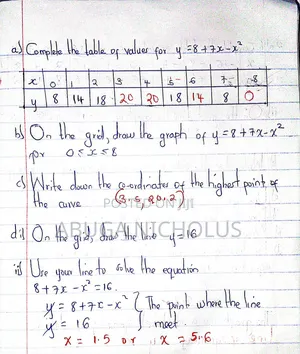 a) Complete the table of values for y = 8 + 7x - x²
x 0 1 2 3 4 5 6 7 8
y 8 14 18 20 20 18 14 8 0
b) On the grid, draw the graph of y = 8 + 7x - x²
for 0 ≤ x ≤ 8
c) Write down the co-ordinates of the highest point of
the curve (3.5, 20.2)
POSTED ON
ABUGA NICHOLUS
d) i) On the grid, draw the line y = 16
ii) Use your line to solve the equation
8 + 7x - x² = 16.
y = 8 + 7x - x² } The point where the line
y = 16 meet
x = 1.5 or x = 5.6